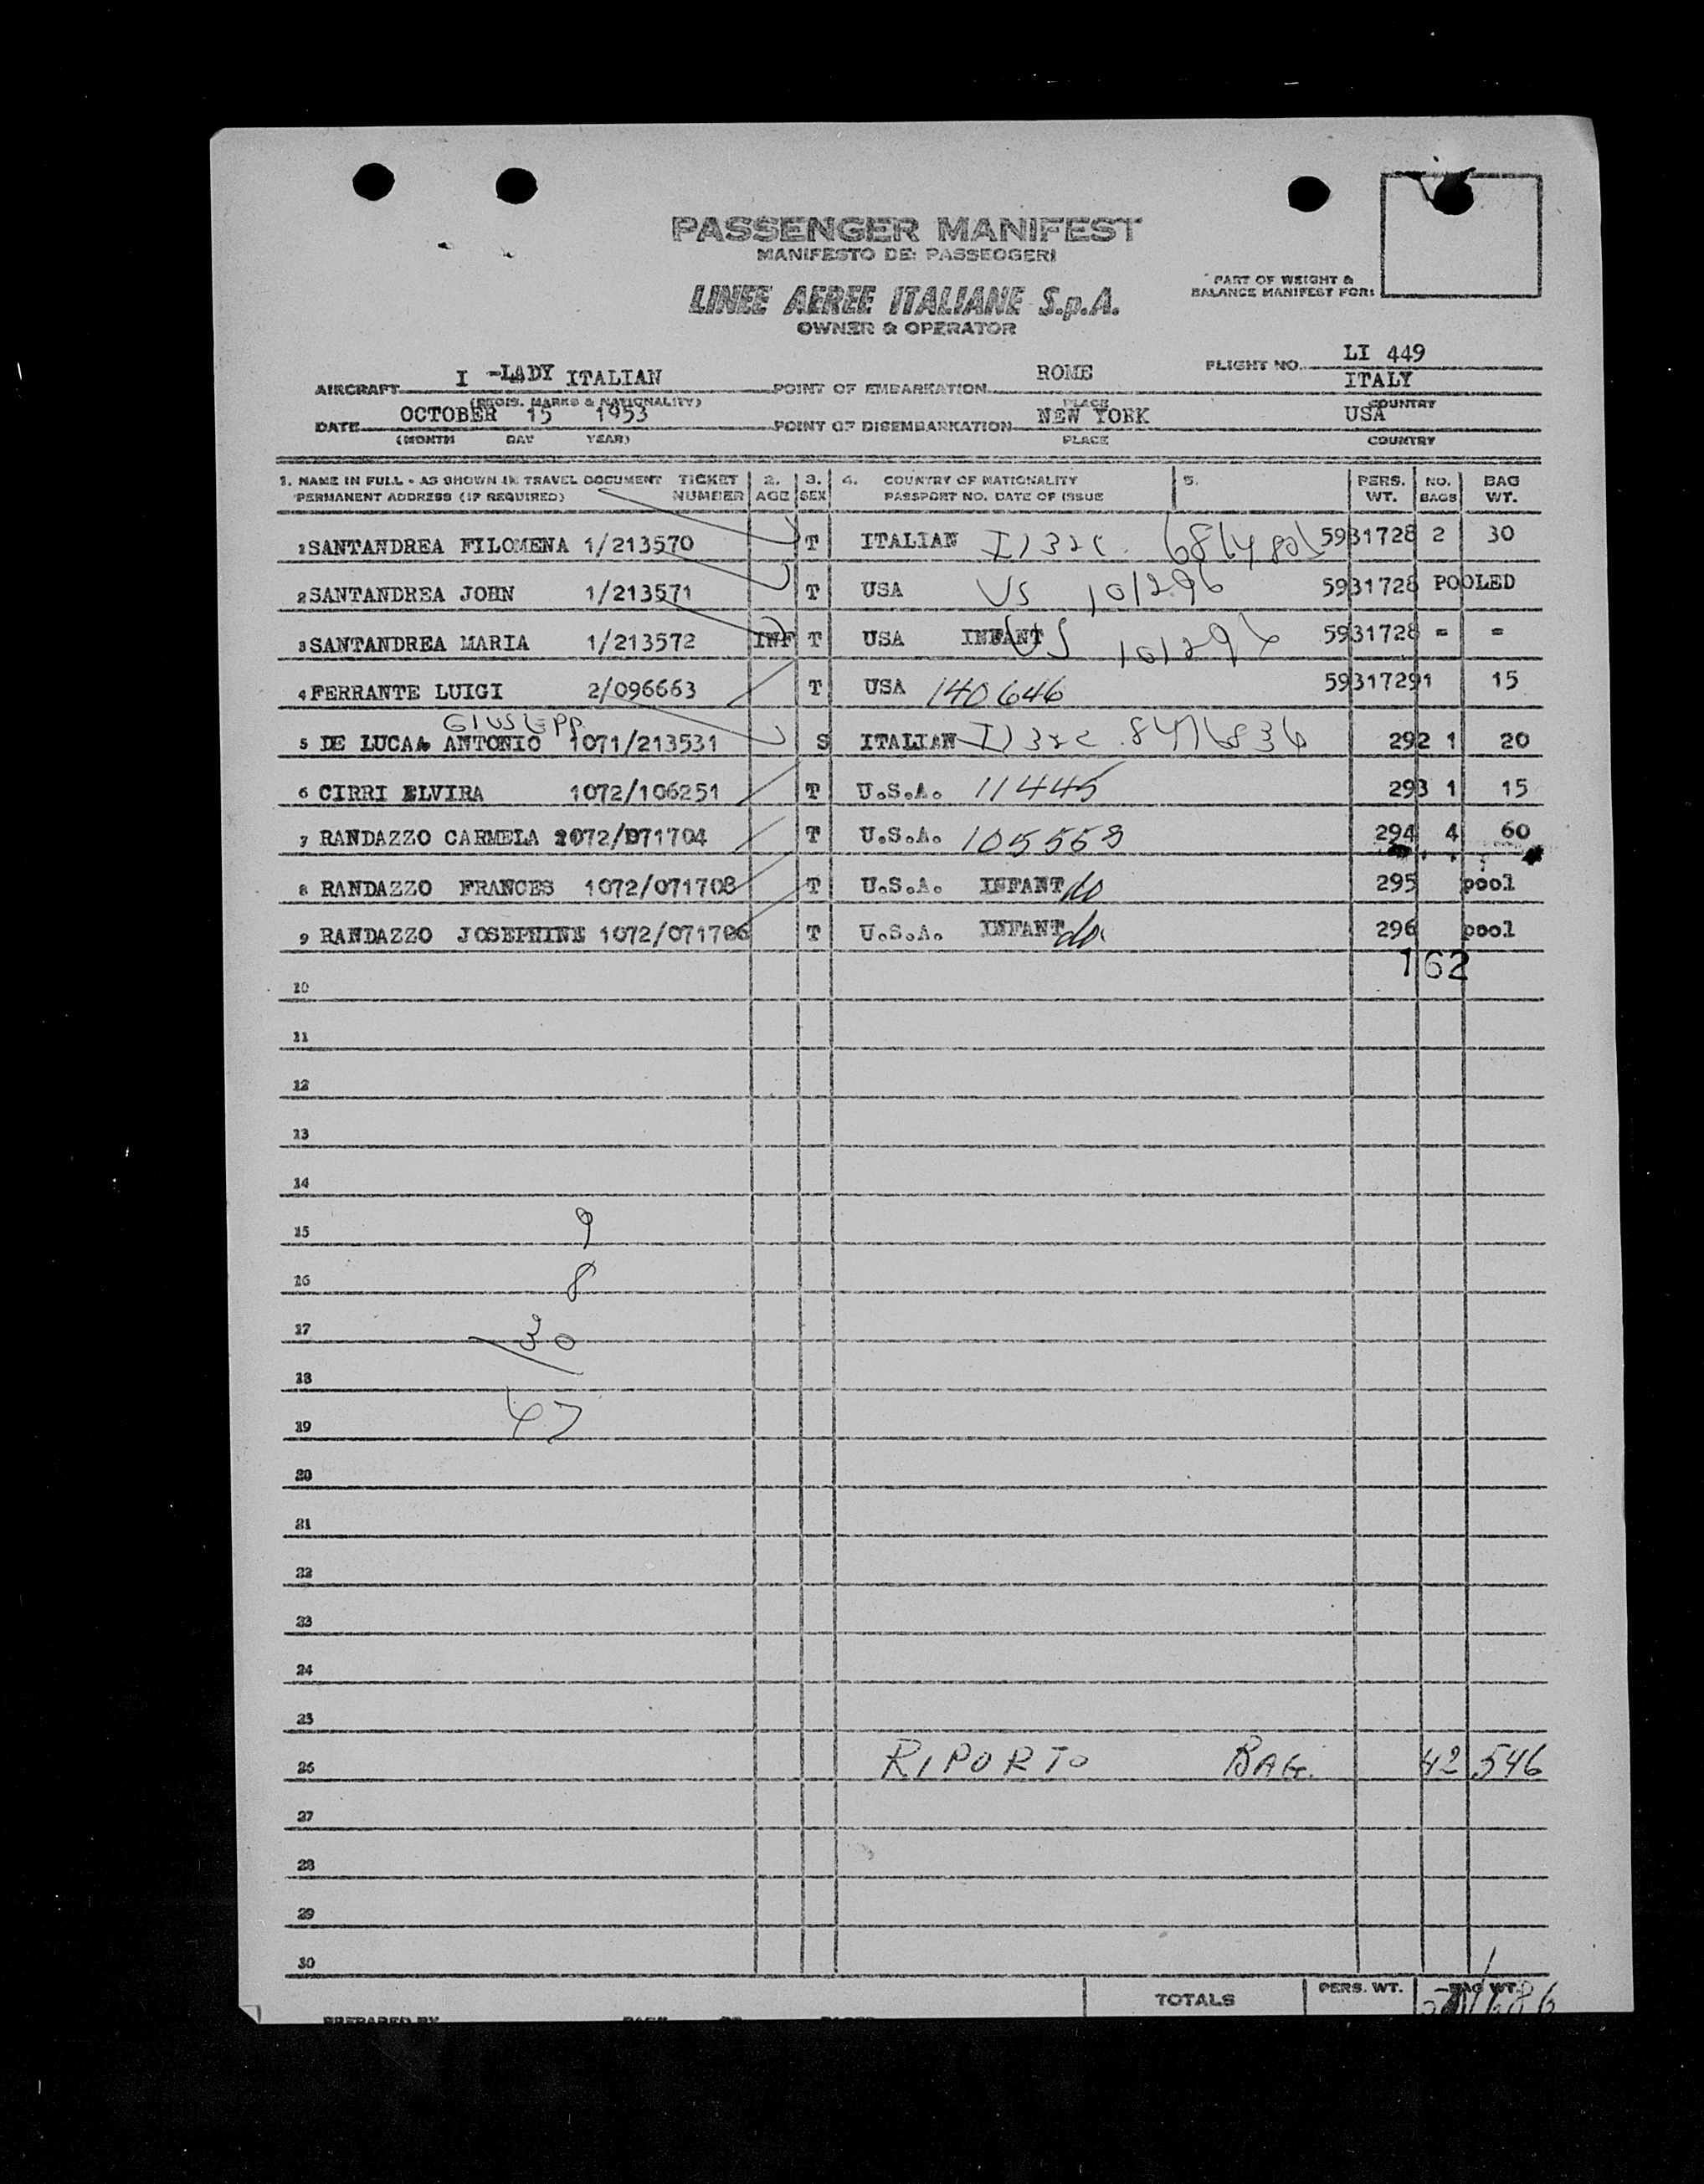 PASSENGER MANIFEST
MANIFESTO DEI PASSEGGERI
LINEE AEREE ITALIANE S.p.A.
OWNER & OPERATOR
PART OF WEIGHT &
BALANCE MANIFEST FOR:
FLIGHT NO. LI 449
AIRCRAFT I -LADY ITALIAN POINT OF EMBARKATION ROME ITALY
(REGIS. MARKS & NATIONALITY) PLACE COUNTRY
DATE OCTOBER 15 1953 POINT OF DISEMBARKATION NEW YORK USA
(MONTH DAY YEAR) PLACE COUNTRY
1. NAME IN FULL - AS SHOWN IN TRAVEL DOCUMENT TICKET 2. 3. 4. COUNTRY OF NATIONALITY 5. PERS. NO. BAG
PERMANENT ADDRESS (IF REQUIRED) NUMBER AGE SEX PASSPORT NO. DATE OF ISSUE WT. BAGS WT.
1 SANTANDREA FILOMENA 1/213570 T ITALIAN 5931728 2 30
2 SANTANDREA JOHN 1/213571 T USA US 101296 5931728 POOLED
3 SANTANDREA MARIA 1/213572 INF T USA INFANT US 101296 5931728 = =
4 FERRANTE LUIGI 2/096663 T USA 140646 59317291 15
GIUSEPP
5 DE LUCA ANTONIO 1071/213531 S ITALIAN 292 1 20
6 CIRRI ELVIRA 1072/106251 T U.S.A. 11445 293 1 15
7 RANDAZZO CARMELA 1072/071704 T U.S.A. 105553 294 4 60
8 RANDAZZO FRANCES 1072/071708 T U.S.A. INFANT do 295 pool
9 RANDAZZO JOSEPHINE 1072/071706 T U.S.A. INFANT do. 296 pool
162
10
11
12
13
14
15 9
16 8
17 30
18
19 47
20
21
22
23
24
25
26 RIPORTO BAG. 42 546
27
28
29
30
TOTALS PERS. WT. BAG WT.
PREPARED BY